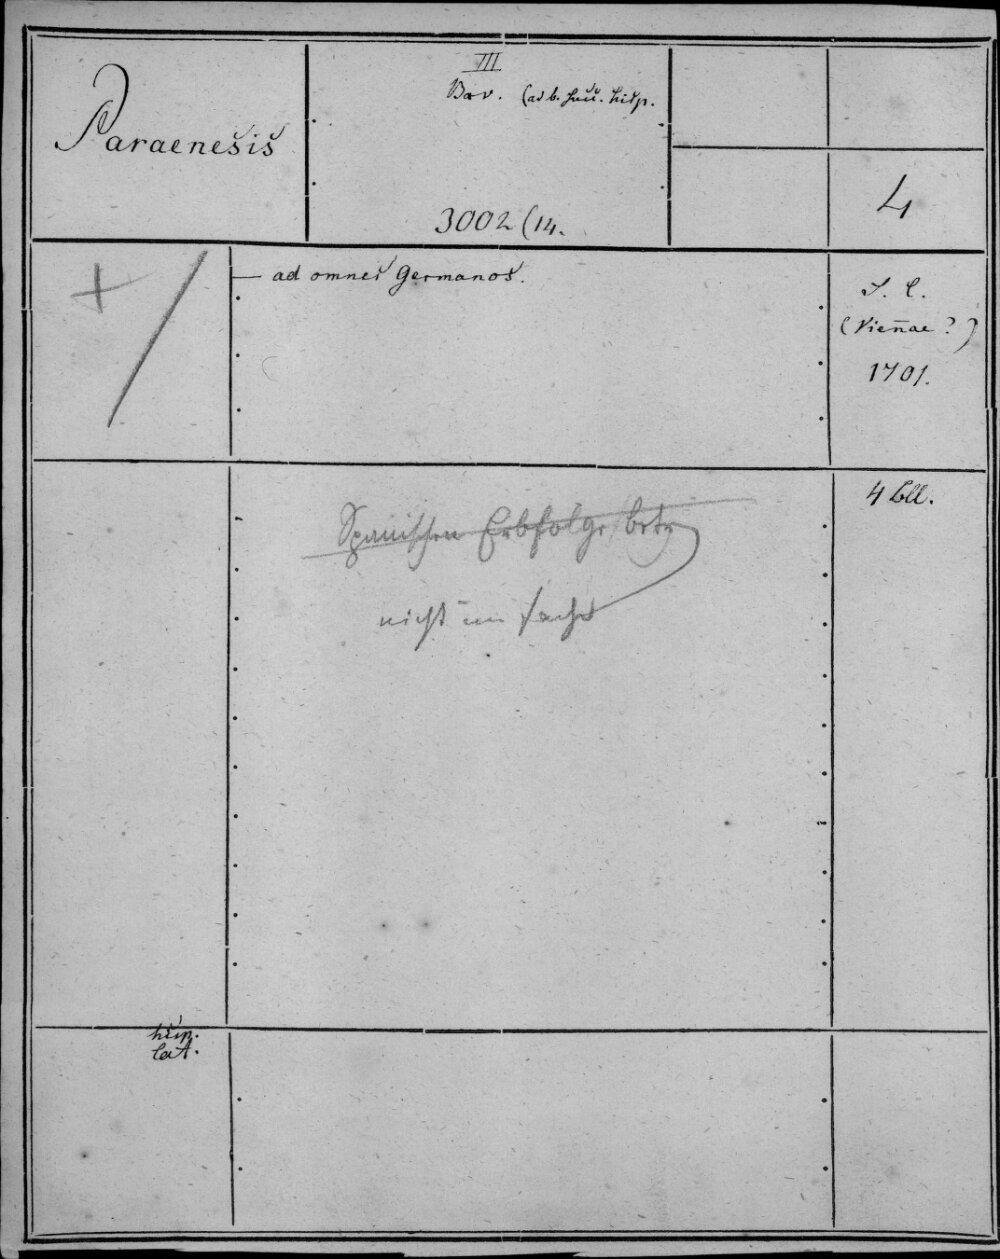 Paraenesis
III
Bav. (ad b. succ. hisp.
3002 (14.
4
— ad omnes Germanos.
S. l.
(Vien̄ae ?)
1701.
4 bll.
Spanischen Erbfolge betr
nicht im
hisp.
lat.